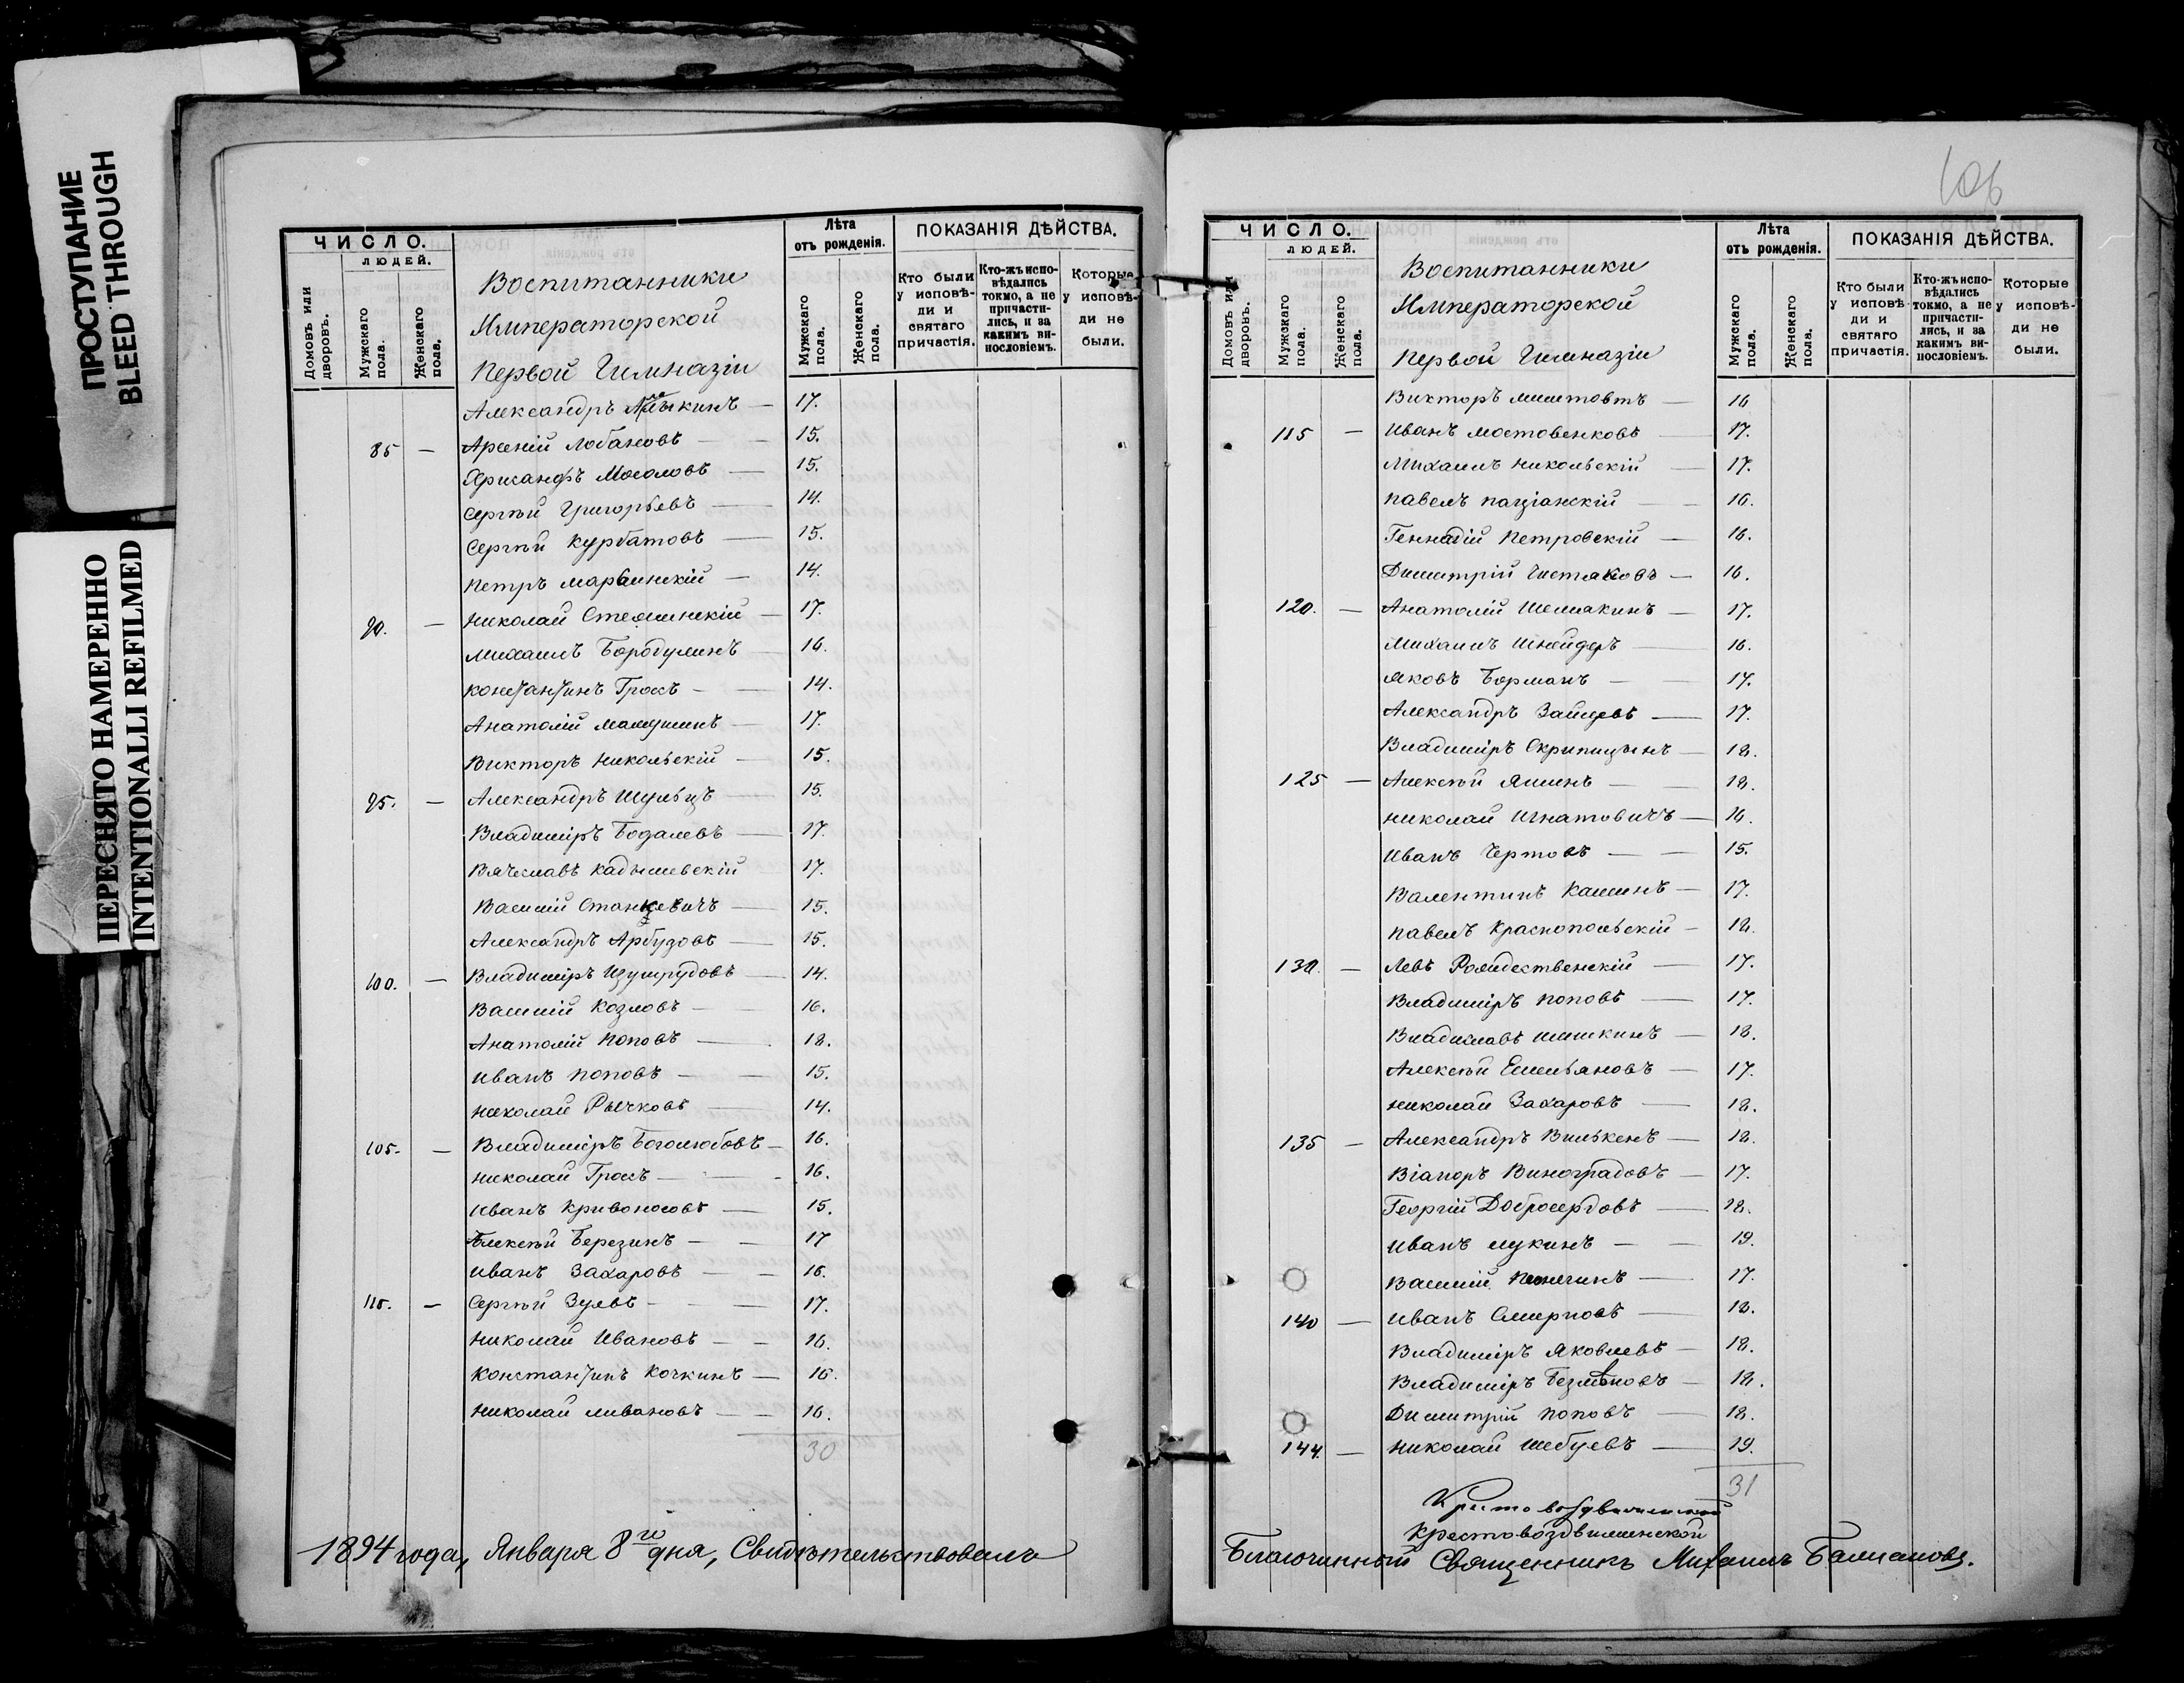 ПРОСТУПАНИЕ
BLEED THROUGH
ПЕРЕСНЯТО НАМЕРЕННО
INTENTIONALLI REFILMED
ЧИСЛО.
ЛЮДЕЙ.
Домовъ или дворовъ.
Мужскаго пола.
Женскаго пола.
Воспитанники
Императорской
Первой Гимназіи
Лѣта
отъ рожденія.
Мужскаго пола.
Женскаго пола.
ПОКАЗАНІЯ ДѢЙСТВА.
Кто были у исповѣди и святаго причастія.
Кто-жъ исповѣдались токмо, а не причастились, и за какимъ винословіемъ.
Которые у исповѣди не были.
Александръ 17.
85 — Арсеній Лобановъ — 15.
Хрисанфъ Мосоловъ — 15.
Сергѣй Григорьевъ — 14.
Сергѣй Курбатовъ — 15.
Петръ — 14.
90. — Николай 17.
Михаилъ Бородулинъ 16.
Константинъ Гроссъ — 14.
Анатолій 17.
Викторъ Никольскій — 15.
95. — Александръ Шульцъ — 15.
Владиміръ Бодалевъ — 17.
Вячеславъ Кадышевскій 17.
Василій Станкевичъ — 15.
Александръ Арбузовъ — 15.
100. — Владиміръ 14.
Василій Козловъ — 16.
Анатолій Поповъ — 18.
Иванъ Поповъ — 15.
Николай Рычковъ 14.
105. — Владиміръ Боголюбовъ — 16.
Николай Гроссъ — 16.
Иванъ Кривоносовъ — 15.
Алексѣй Березинъ — 17
Иванъ Захаровъ — 16.
110. — Сергѣй Зуевъ — 17.
Николай Ивановъ — 16.
Константинъ Кочкинъ — 16.
Николай Ливановъ — 16.
30
1894 года, Января 8го дня, Свидѣтельствовалъ
106
ЧИСЛО.
ЛЮДЕЙ.
Домовъ или дворовъ.
Мужскаго пола.
Женскаго пола.
Воспитанники
Императорской
Первой Гимназіи
Лѣта
отъ рожденія.
Мужскаго пола.
Женскаго пола.
ПОКАЗАНІЯ ДѢЙСТВА.
Кто были у исповѣди и святаго причастія.
Кто-жъ исповѣдались токмо, а не причастились, и за какимъ винословіемъ.
Которые у исповѣди не были.
Викторъ Миштовтъ — 16
115 — Иванъ Мостовенковъ 17.
Михаилъ Никольскій — 17.
Павелъ 16.
Геннадій Петровскій — 16.
Димитрій Чистяковъ — 16.
120. — Анатолій Шемякинъ — 17.
Михаилъ Шнейдеръ — 16.
Яковъ Борманъ — 17.
Александръ Зайцевъ — 17.
Владиміръ Скрипицынъ — 18.
125 — Алексѣй Яшинъ — 18.
Николай Игнатовичъ — 16.
Иванъ Чертовъ — 15.
Валентинъ Кашинъ — 17.
Павелъ Краснопольскій — 18.
130. — Левъ Рождественскій — 17.
Владиміръ Поповъ — 17.
Владиславъ Шишкинъ — 18.
Алексѣй Емельяновъ — 17.
Николай Захаровъ — 18.
135 — Александръ Вилькенъ — 18.
Віаноръ Виноградовъ — 17.
Георгій Добросердовъ — 18.
Иванъ Лукинъ — 19.
Василій 17.
140 — Иванъ Смирновъ — 18.
Владиміръ Яковлевъ — 18.
Владиміръ Безмѣновъ — 18.
Димитрій Поповъ — 18.
144. — Николай Шебуевъ — 19.
31
Крестовоздвиженской
Крестовоздвиженской
Благочинный Священникъ Михаилъ